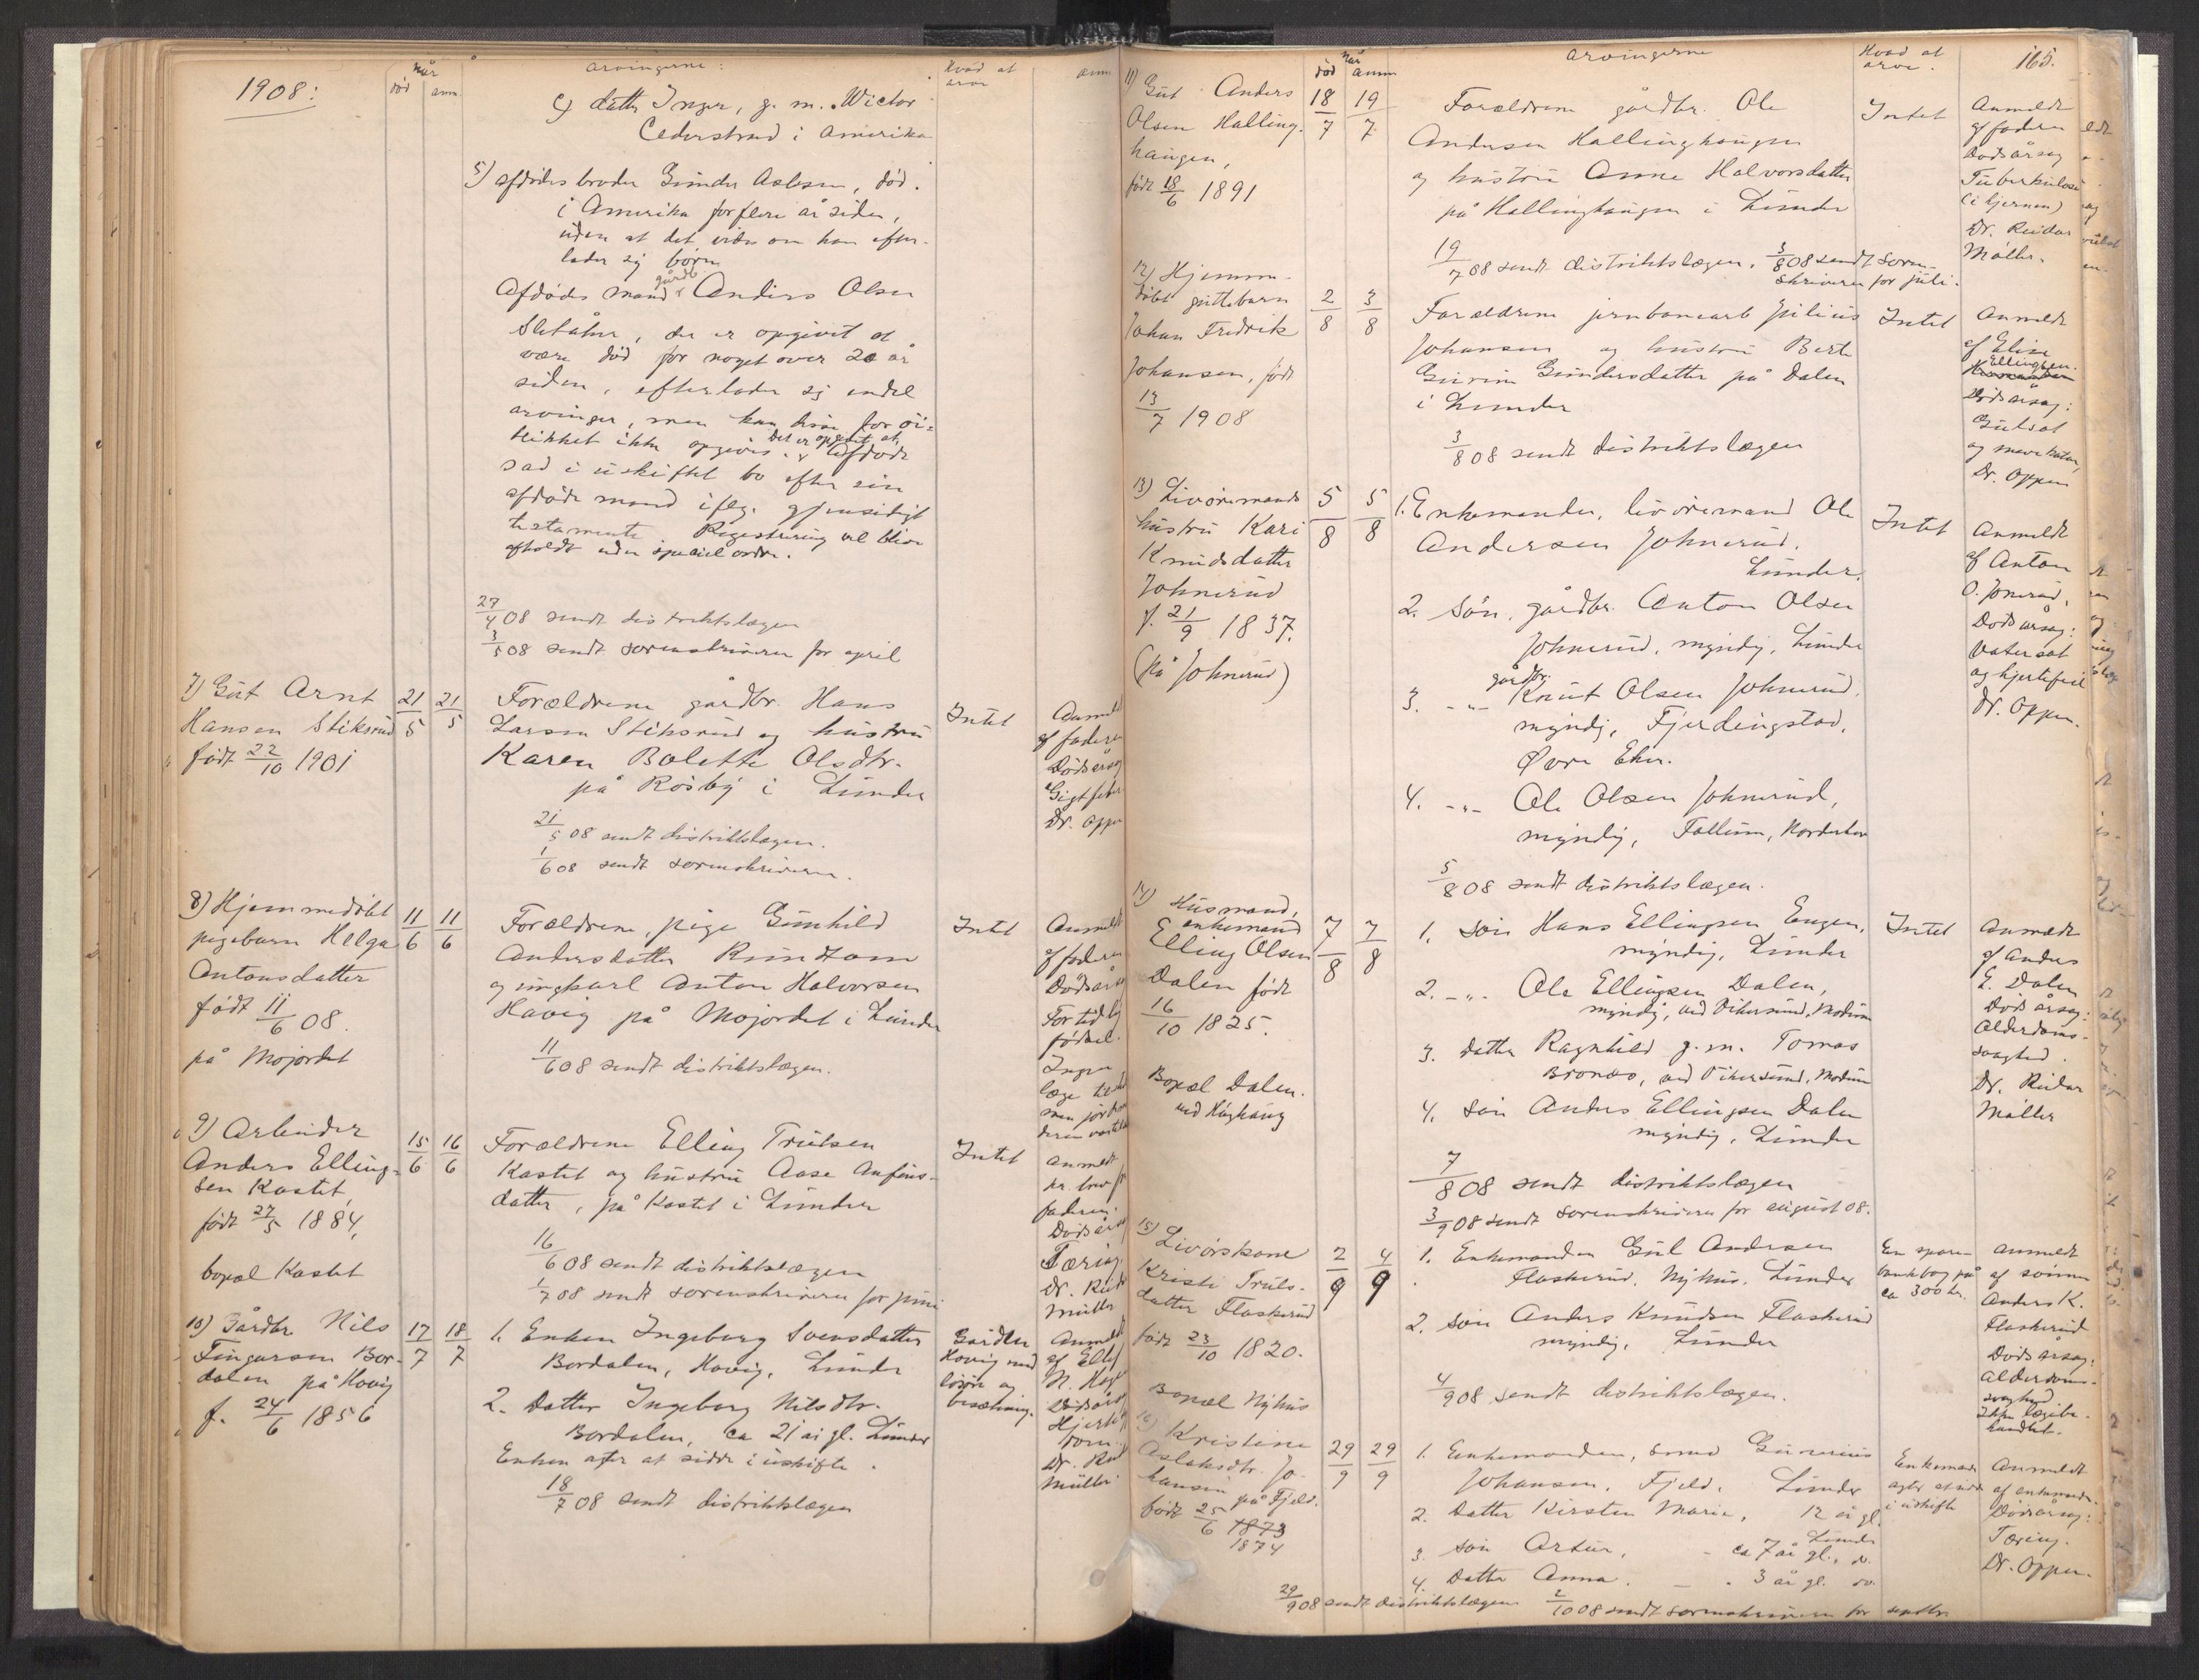 1908:
når
død
anm.
arvingerne:
Hvad at
arve
anm
c) datter Inger, g. m. Wictor
Cederstrand i Amerika
5) afdødes broder Gunder Aslesen, død.
i Amerika for flere år siden,
uden at det vides om han efter-
lader sig børn
gårdb.
Afdødes mand Anders Olsen
Sletåker, der er opgivet at
være død for noget over 20 år
siden, efterlader sig endel
arvinger, men kan disse for øi-
blikket ikke opgives. det er opgivet, at Afdøde
sad i uskiftet bo efter sin
afdøde mand ifølg. gjensidigt
testamente Registrering vil blive
afholdt uden speciel ordre.
27/4 08 sendt distriktslægen
3/5 08 sendt sorenskriveren for april
7) Gut Arnt
Hansen Stiksrud
født 22/10 1901
21/5
21/5
Forældrene gårdbr. Hans
Larsen Stiksrud og hustru
Karen Bolette Olsdtr.
på Rosby i Lunder
21/5 08 sendt distriktslægen.
1/6 08 sendt sorenskriveren.
Intet
Anmeldt
af faderen
Dødsårsag
Gigtfeber
Dr. Oppen
8) Hjemmedøbt
pigebarn Helga
Antonsdatter
født 11/6 08.
på Mojordet
11/6
11/6
Forældrene, pige Gunhild
Andersdatter Rundtom
og ungkarl Anton Halvorsen
Havig på Mojordet i Lunder
11/6 08 sendt distriktslægen.
Intet
Anmeldt
af faderen
Dødsårsag
For tidlig
fødsel.
Ingen
læge
men jordmo
deren
9) Arbeider
Anders Elling-
sen Kastet,
født 27/5 1884,
bopæl Kastet
15/6
16/6
Forældrene Elling Trulsen
Kastet og hustru Aase Anfins-
datter, på Kastet i Lunder
16/6 08 sendt distriktslægen
1/7 08 sendt sorenskriveren for juni
Intet
anmeldt
pr. brev fra
faderen.
Dødsårsag
Tæring.
Dr. Reidar
Møller
10) Gårdbr Nils
Fingarsen Bor-
dalen på Hovig
f. 24/6 1856
17/7
18/7
1. Enken Ingeborg Svensdatter
Bordalen, Hovig, Lunder
2. Datter Ingeborg Nilsdtr.
Bordalen, ca 21 år gl. Lunder
Enken agter at sidde i uskifte.
18/7 08 sendt distriktslægen
Gården
Hovig med
løsøre og
besætning.
Anmeldt
af
Dødsårsag
Dr. Reidar
Møller
når
død
anm
arvingerne
Hvad at
arve.
165.
11) Gut Anders
Olsen Halling-
haugen,
født 18/6 1891
18/7
19/7
Forældrene gårdbr. Ole
Andersen Hallinghaugen
og hustru Anne Halvorsdatter
på Hallinghaugen i Lunder
19/7 08 sendt distriktslægen. 3/8 08 sendt soren-
skriveren for juli.
Intet
Anmeldt
af faderen
Dødsårsag
Tuberkulose
(i hjernen)
Dr. Reidar
Møller.
12) Hjemme-
døbt guttebarn
Johan Fredrik
Johansen, født
13/7 1908
2/8
3/8
Forældrene jernbanearb Julius
Johansen og hustru Berte
Gurine Gundersdatter på Dalen
i Lunder
3/8 08 sendt distriktslægen
Intet
Anmeldt
af Elise
Ellingsen.
Dødsårsag:
Gulsot
og mavekatar,
Dr. Oppen
13) Livøremands
hustru Kari
Knudsdatter
Johnsrud
f. 21/9 1837.
(på Johnsrud)
5/8
5/8
1. Enkemanden, livøremand Ole
Andersen Johnsrud,
Lunder.
2. Søn, gårdbr. Anton Olsen
Johnsrud, myndig, Lunder
gårdbr.
3. -"- Knut Olsen Johnsrud.
myndig, Fjerdingstad,
Øvre Eker.
4. -"- Ole Olsen Johnsrud,
myndig, Follum, Norderhov
5/8 08 sendt distriktslægen.
Intet
Anmeldt
af Anton
O. Jonsrud,
Dødsårsag:
Vatersot
og hjertefeil
Dr. Oppen.
14) Husmand,
enkemand
Elling Olsen
Dalen født
16/10 1825.
Bopæl Dalen.
ved Høghaug
7/8
7/8
1. søn Hans Ellingsen Eugen,
myndig, Lunder
2. -"- Ole Ellingsen Dalen,
myndig, ved Vikersund, Modum
3. datter Ragnhild g. m. Tomas
Bronæs, ved Vikersund, Modum
4. søn Anders Ellingsen Dalen
myndig, Lunder
7/8 08 sendt distriktslægen
3/9 08 sendt sorenskriveren for august 08.
Intet
Anmeldt
af Anders
E. Dalen
Dødsårsag:
Alderdoms-
svaghed.
Dr. Reidar
Møller
15) Livørskone
Kristi Truls-
datter Flaskerud
født 23/10 1820.
Bopæl Nyhus
2/9
4/9
1. Enkemanden Gul Andersen
Flaskerud, Nyhus, Lunder
2. søn Anders Knudsen Flaskerud
myndig, Lunder
4/9 08 sendt distriktslægen.
En spare-
bankbog på
ca 300 kr.
anmeldt
af sønnen
Anders K.
Flaskerud
Dødsårsag:
alderdoms-
svaghed
Ikke lægebe-
handlet.
16) Kristine
Aslaksdtr. Jo-
hansen på Fjeld.
født 25/6 1873
1874
29/9
29/9
1. Enkemanden, smed Gunerius
Johansen, Fjeld, Lunder
2. Datter Kirsten Marie, 12 år gl.
Lunder
3. søn Artur, - ca 7 år gl., do.
4. Datter Anna. - - 3 år gl. do.
29/9 08 sendt distriktslægen 2/10 08 sendt sorenskriveren for septbr
Enkemanden
agter at sidde
i uskifte
Anmeldt
af enkemanden.
Dødsårsag:
Tæring.
Dr. Oppen.